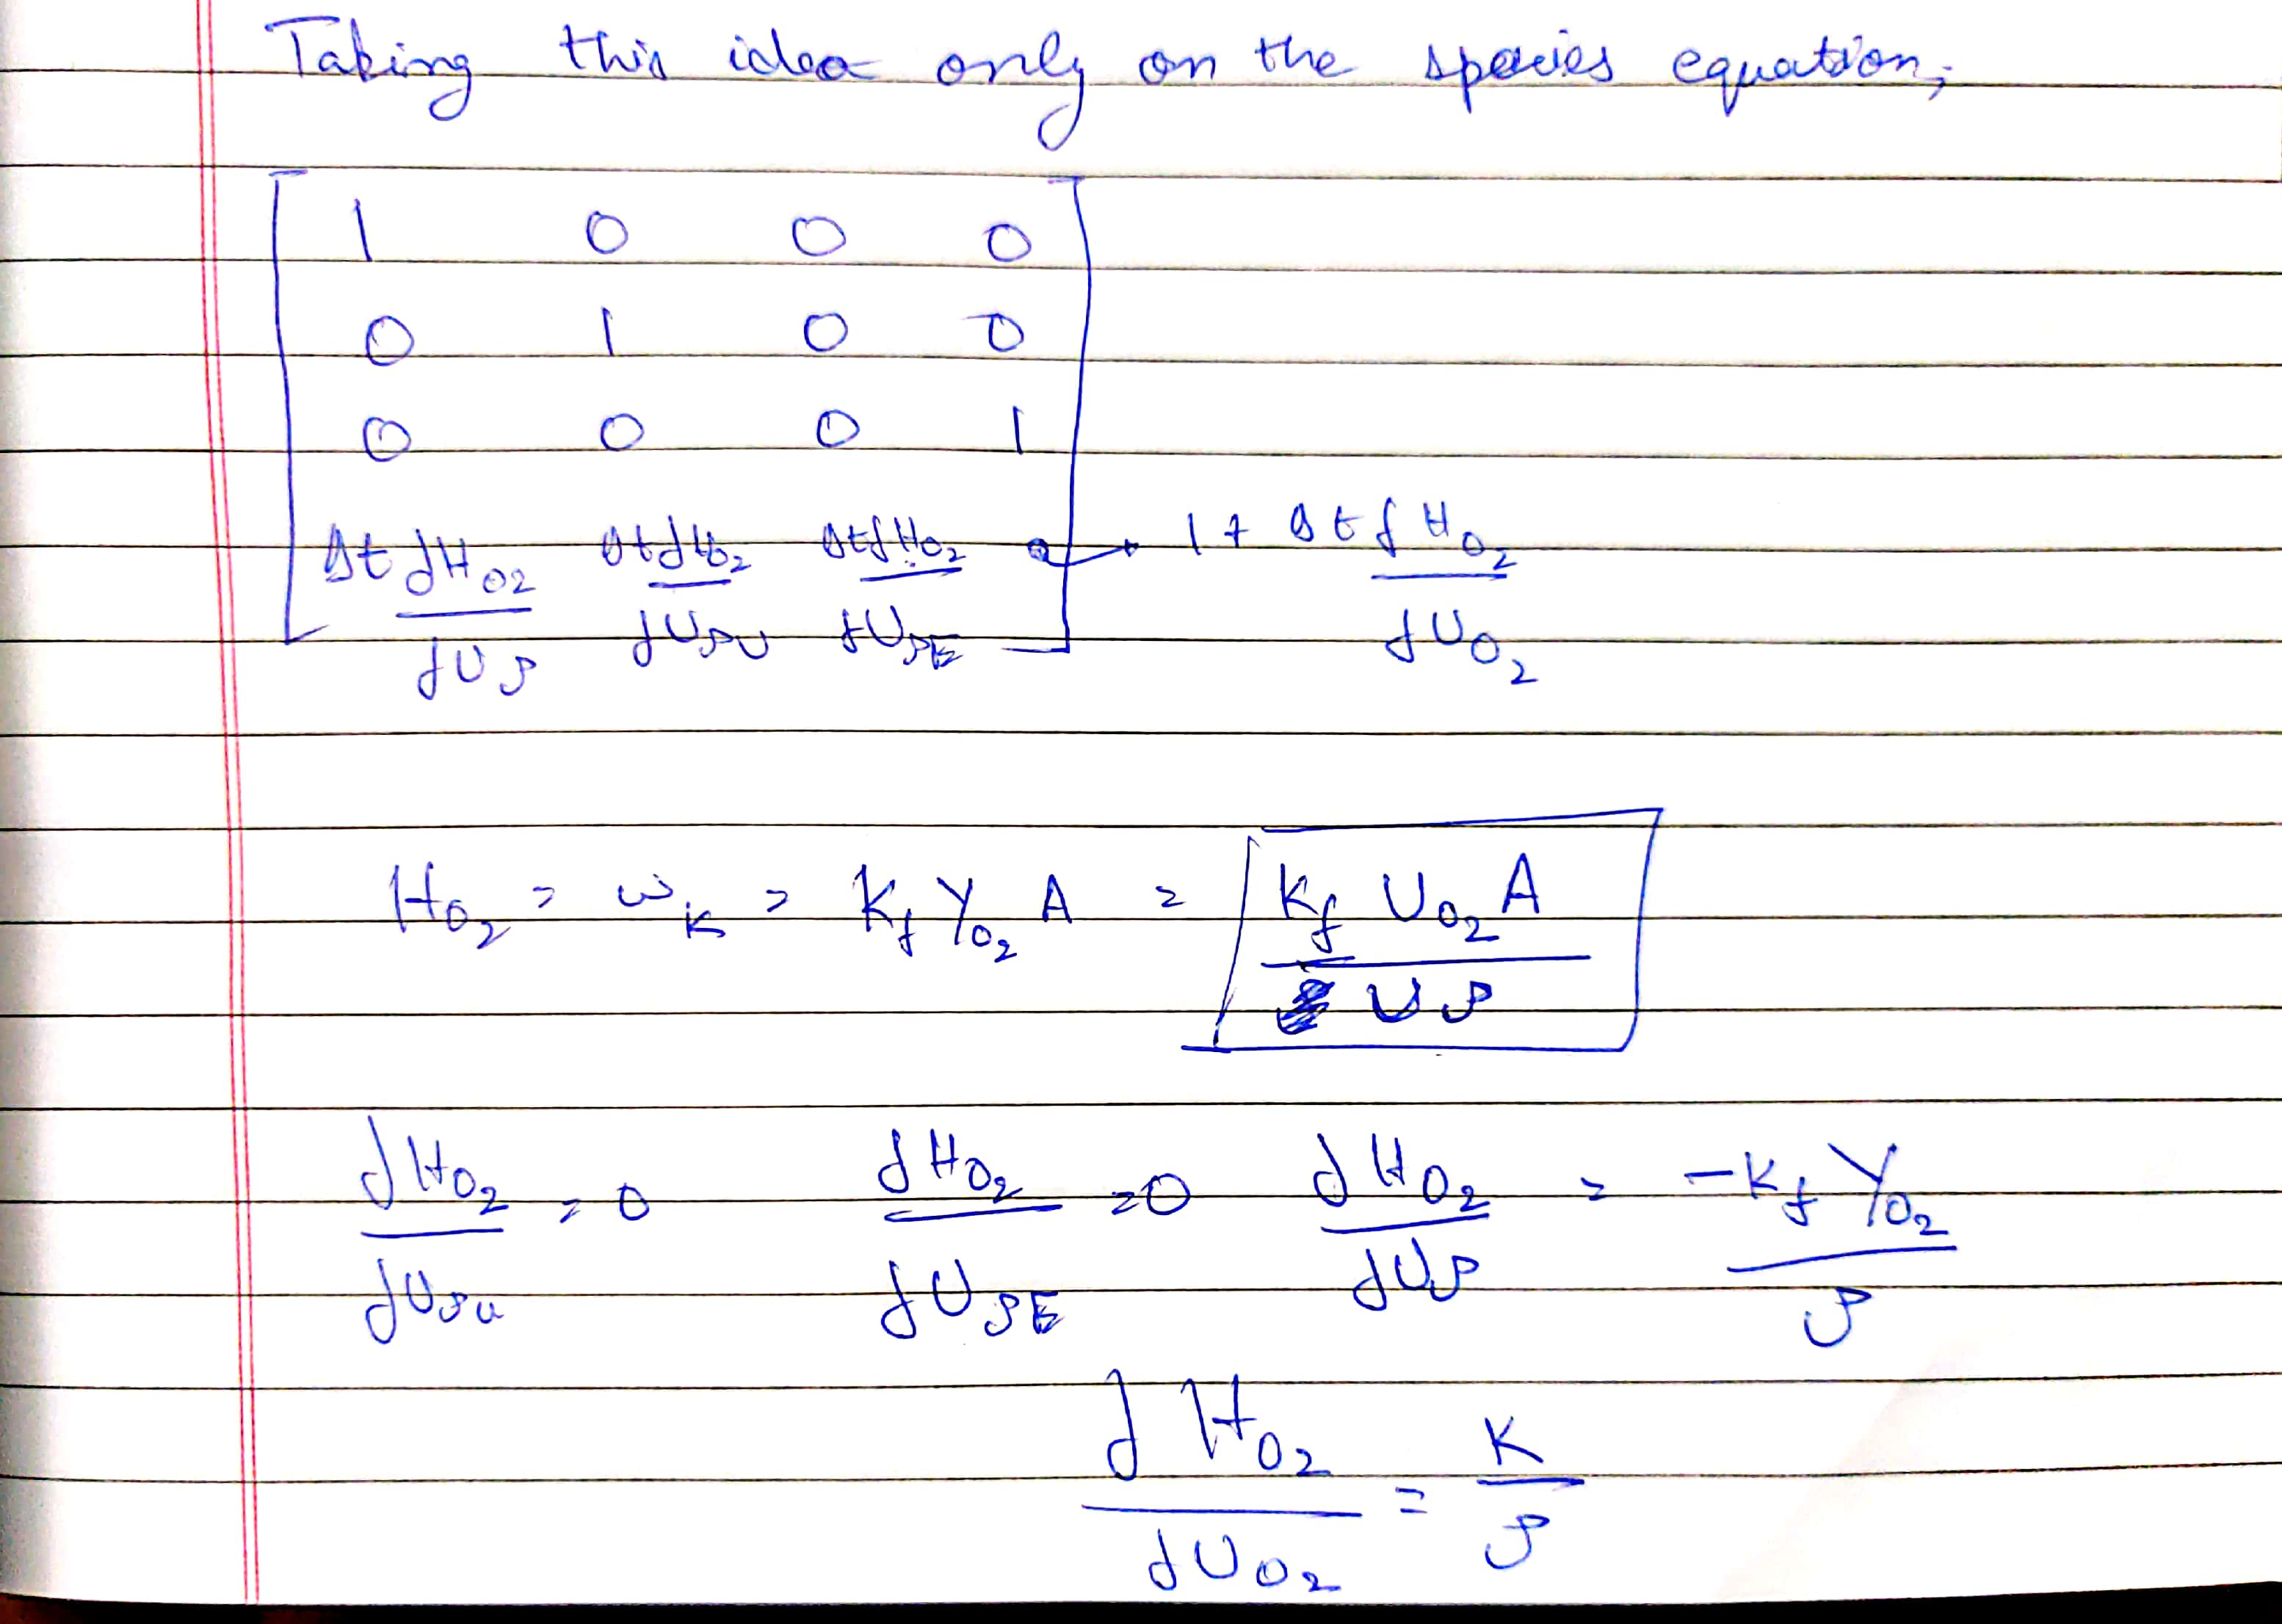 Taking this idea only on the species equation,
1 0 0 0
0 1 0 0
0 0 0 1
Δt ∂H_O2/∂U_ρ Δt ∂H_O2/∂U_ρU Δt ∂H_O2/∂U_ρE → 1 + Δt ∂H_O2/∂U_O2
H_O2 = ω_K = K_f Y_O2 A = K_f U_O2 A / U_ρ
∂H_O2/∂U_ρu = 0 ∂H_O2/∂U_ρE = 0 ∂H_O2/∂U_ρ = -K_f Y_O2/ρ
∂H_O2/∂U_O2 = K/ρ